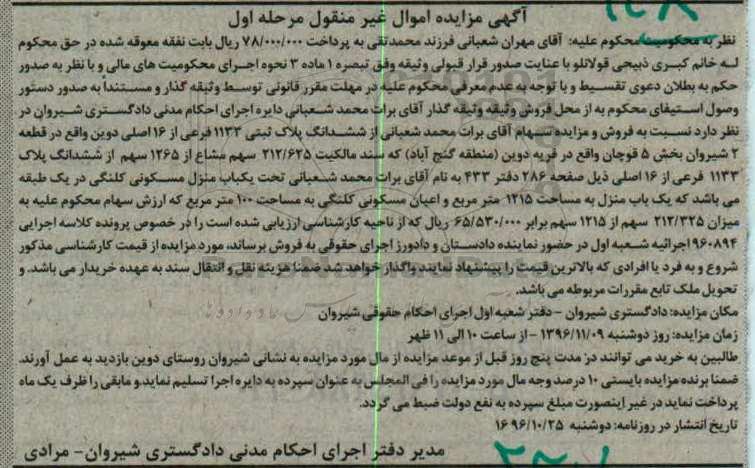 آگهی مزایده اموال غیر منقول مرحله اول
نظر به محکومیت محکوم علیه: آقای مهران شعبانی فرزند محمدتقی به پرداخت ۷۸/۰۰۰/۰۰۰ ریال بابت نفقه معوقه شده در حق محکوم
لـه خانم کبـری ذبیحی قولانلو با عنایت صدور قرار قبولی وثیقه وفق تبصره ۱ ماده ۳ نحوه اجـرای محکومیت های مالی و با نظر به صدور
حکم به بطلان دعوی تقسیـط و با توجه به عدم معرفی محکوم علیه در مهلت مقرر قانونی توسـط وثیقه گذار و مسـتنداً به صدور دستور
وصول اسـتیفای محکوم به از محل فروش وثیقه وثیقه گذار آقای برات محمد شـعبانی دایره اجرای احکام مدنی دادگستـری شیروان در
نظر دارد نسـبت به فروش و مزایده سـهام آقای برات محمد شعبانی از ششـدانگ پلاک ثبتی ۱۱۳۳ فرعی از ۱۶ اصلی دوین واقع در قطعه
۲ شیروان بخش ۵ قوچان واقع در قریه دوین (منطقه گنج آباد) که سند مالکیت ۲۱۲/۶۲۵ سهم مشاع از ۱۲۶۵ سهم از ششدانگ پلاک
۱۱۳۳ فرعی از ۱۶ اصلی ذیل صفحه ۲۸۶ دفتر ۴۳۳ به نام آقای برات محمد شـعبانی تحت یکباب منزل مسـکونی کلنگی در یک طبقه
می باشد که یک باب منزل به مساحت ۱۲۱۵ متر مربع و اعیان مسکونی کلنگی به مساحت ۱۰۰ متر مربع که ارزش سهام محکوم علیه به
میزان ۲۱۲/۳۲۵ سهم از ۱۲۱۵ سهم برابر ۶۵/۵۳۰/۰۰۰ ریال که از ناحیه کارشناسی ارزیابی شده است را در خصوص پرونده کلاسه اجرایی
۹۶۰۸۹۴ اجرائیه شـعبه اول در حضور نماینده دادسـتان و دادورز اجرای حقوقی به فروش برساند، مورد مزایده از قیمت کارشناسی مذکور
شروع و به فرد یا افرادی که بالاترین قیمت را پیشنهاد نمایند واگذار خواهد شد ضمنا هزینه نقل و انتقال سند به عهده خریدار می باشد. و
تحویل ملک تابع مقررات مربوطه می باشد.
مکان مزایده: دادگستری شیروان – دفتر شعبه اول اجرای احکام حقوقی شیروان
زمان مزایده: روز دوشنبه ۱۳۹۶/۱۱/۰۹ – از ساعت ۱۰ الی ۱۱ ظهر
طالبین به خرید می توانند در مدت پنج روز قبل از موعد مزایده از مال مورد مزایده به نشانی شیروان روستای دوین بازدید به عمل آورند.
ضمنا برنده مزایده بایستی ۱۰ درصد وجه مال مورد مزایده را فی المجلس به عنوان سپرده به دایره اجرا تسلیم نماید و مابقی را ظرف یک ماه
پرداخت نماید در غیر اینصورت مبلغ سپرده به نفع دولت ضبط می گردد.
تاریخ انتشار در روزنامه: دوشنبه ۹۶/۱۰/۲۵ ۱۶
مدیر دفتر اجرای احکام مدنی دادگستری شیروان- مرادی